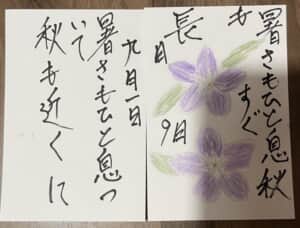 暑さもひと息秋
もすぐ
長月
9日
九月一日
暑さもひと息つ
いて
秋も近くに